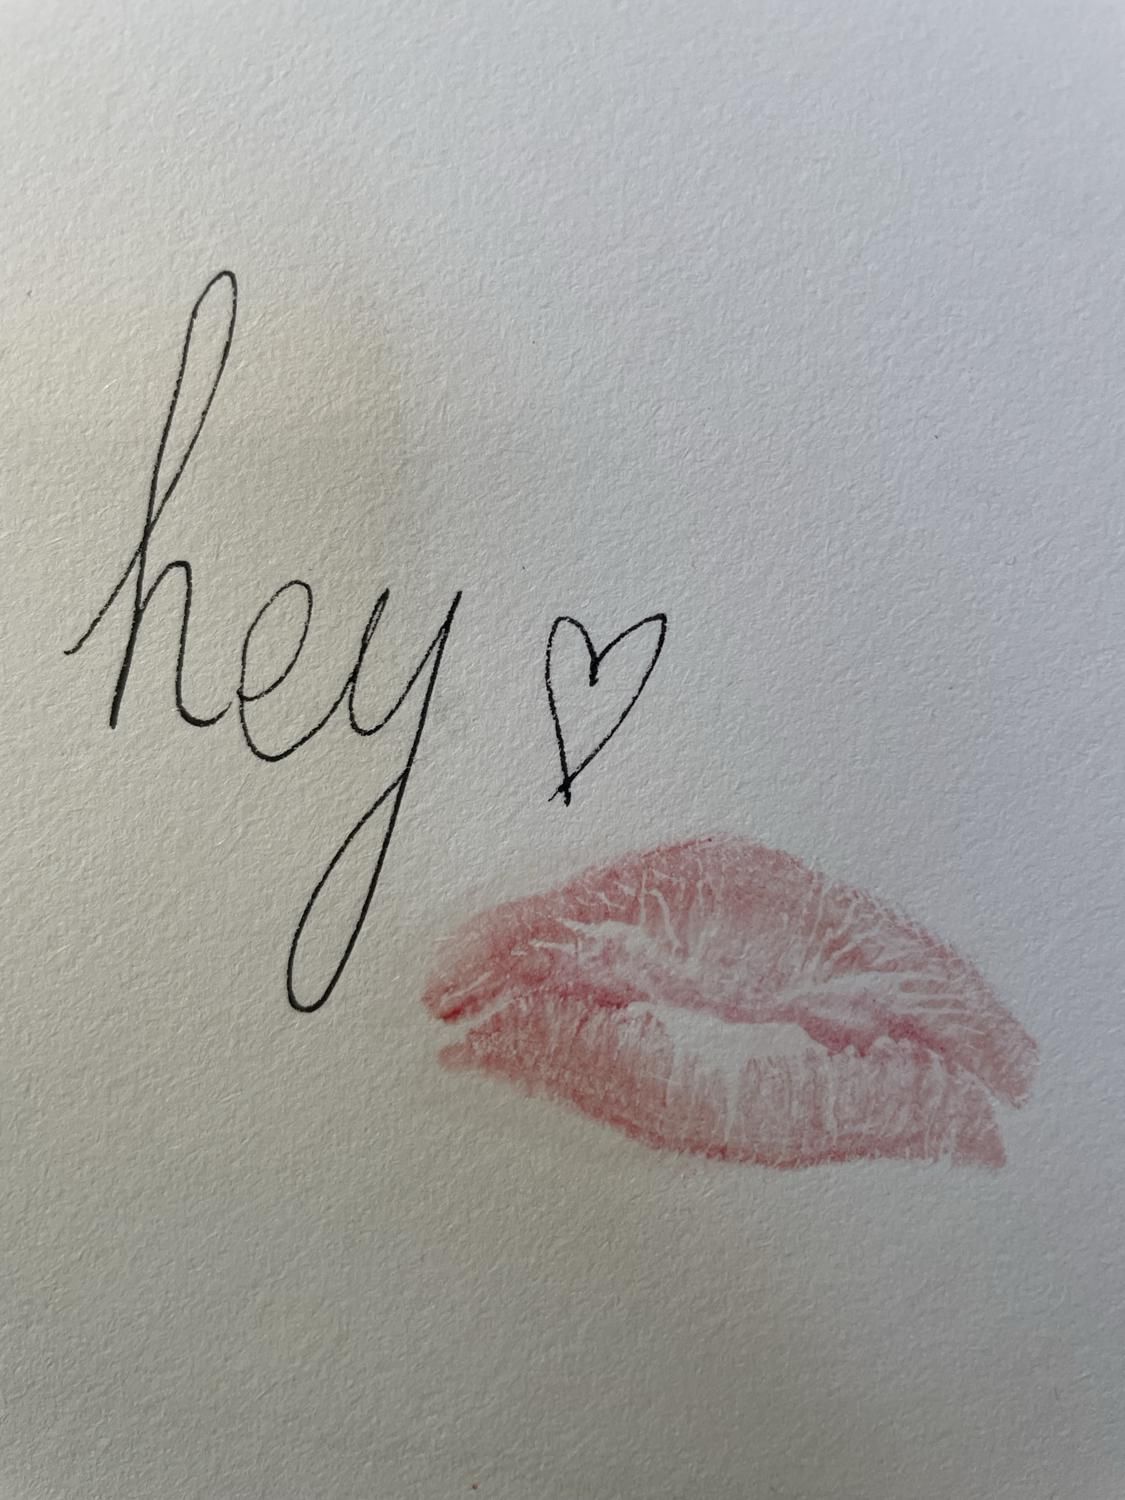 hey ♡